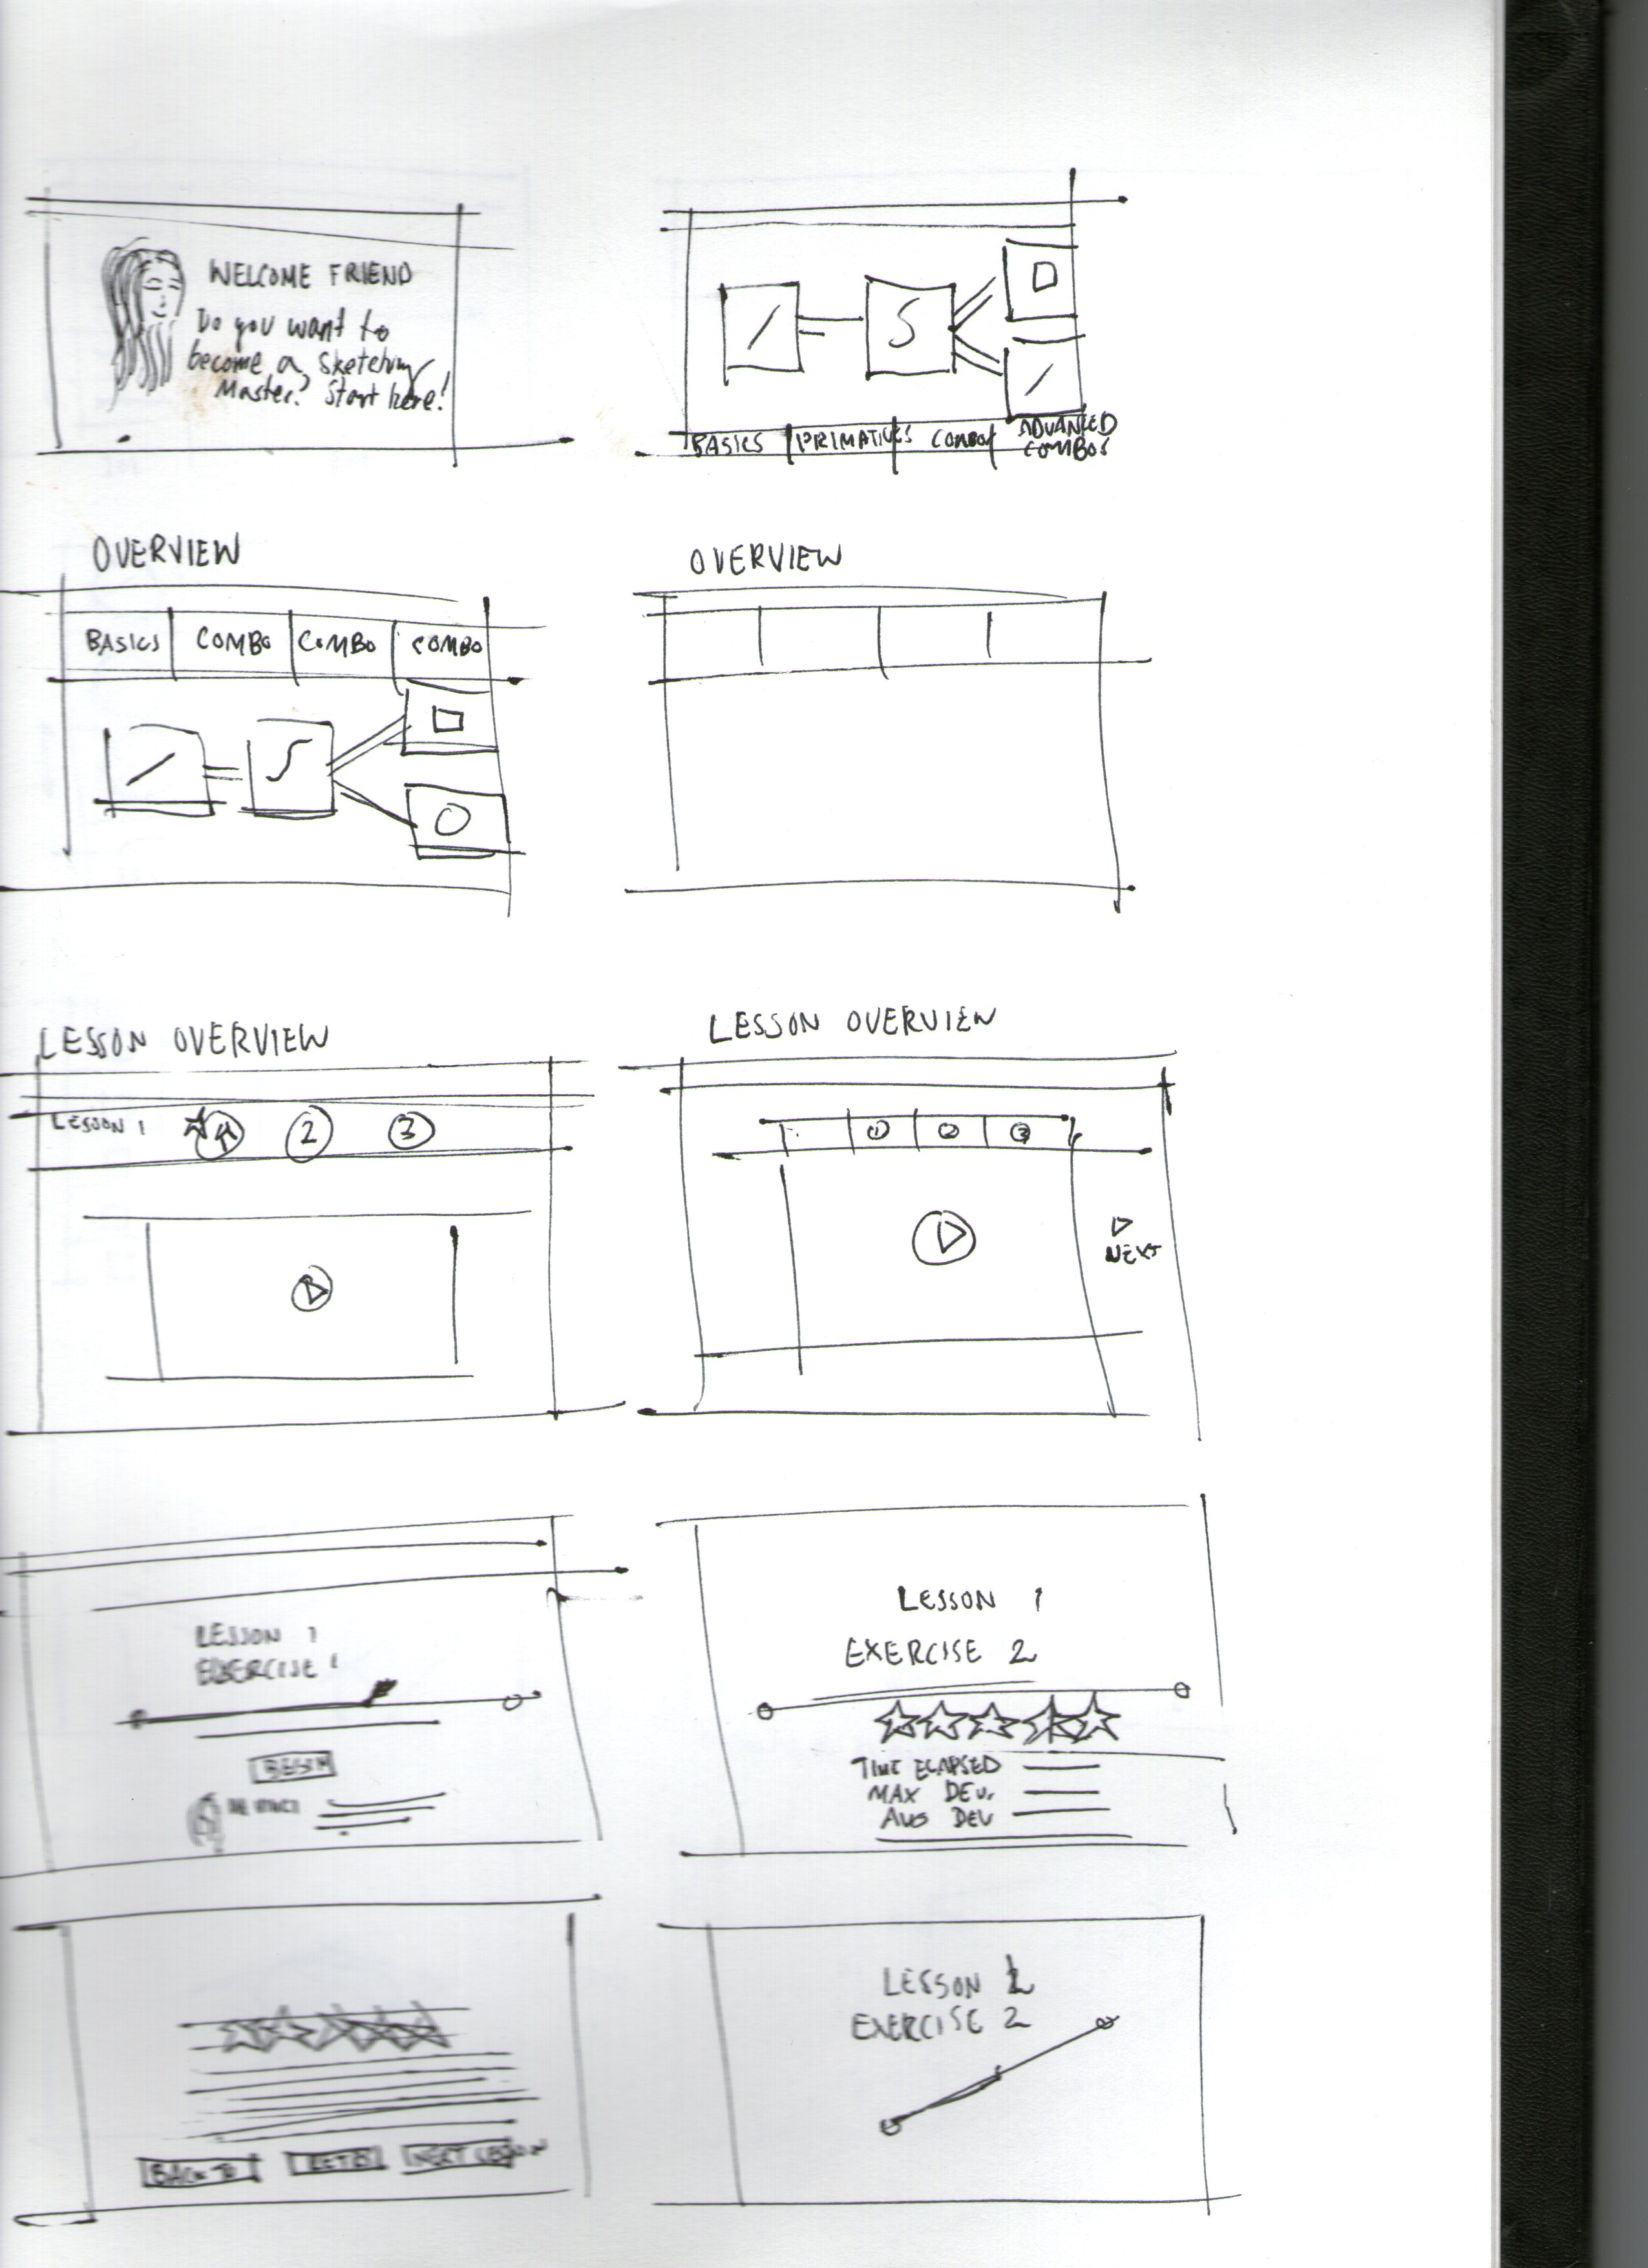 WELCOME FRIEND
Do you want to
become a Sketching
Master? Start here!
BASICS PRIMATIVES COMBOS ADVANCED
COMBOS
OVERVIEW
BASICS COMBO COMBO COMBO
OVERVIEW
LESSON OVERVIEW
LESSON 1 2 3
LESSON OVERVIEW
1 2 3
NEXT
LESSON 1
EXERCISE 1
BEGIN
LESSON 1
EXERCISE 2
TIME ELAPSED
MAX DEV.
AVG DEV
BACK TO NEXT LESSON
LESSON 2
EXERCISE 2